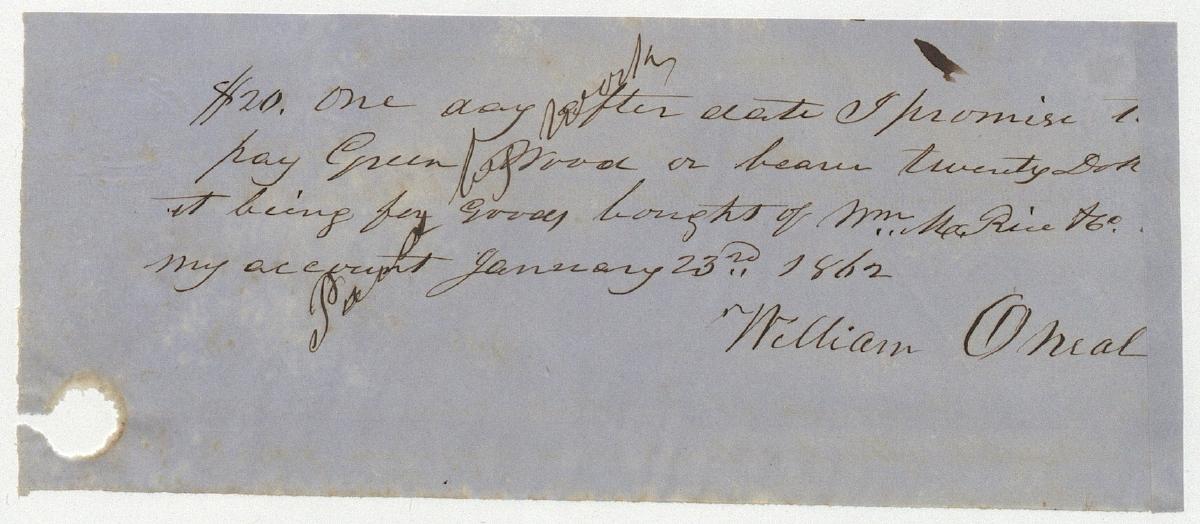 $20. One day after date I promise t.
pay Green Wood or bearer twenty Doll
it being for Goods bought of Wm. Ma. Rice &Co.
my account January 23rd 1862
William ONeal
Paid by work